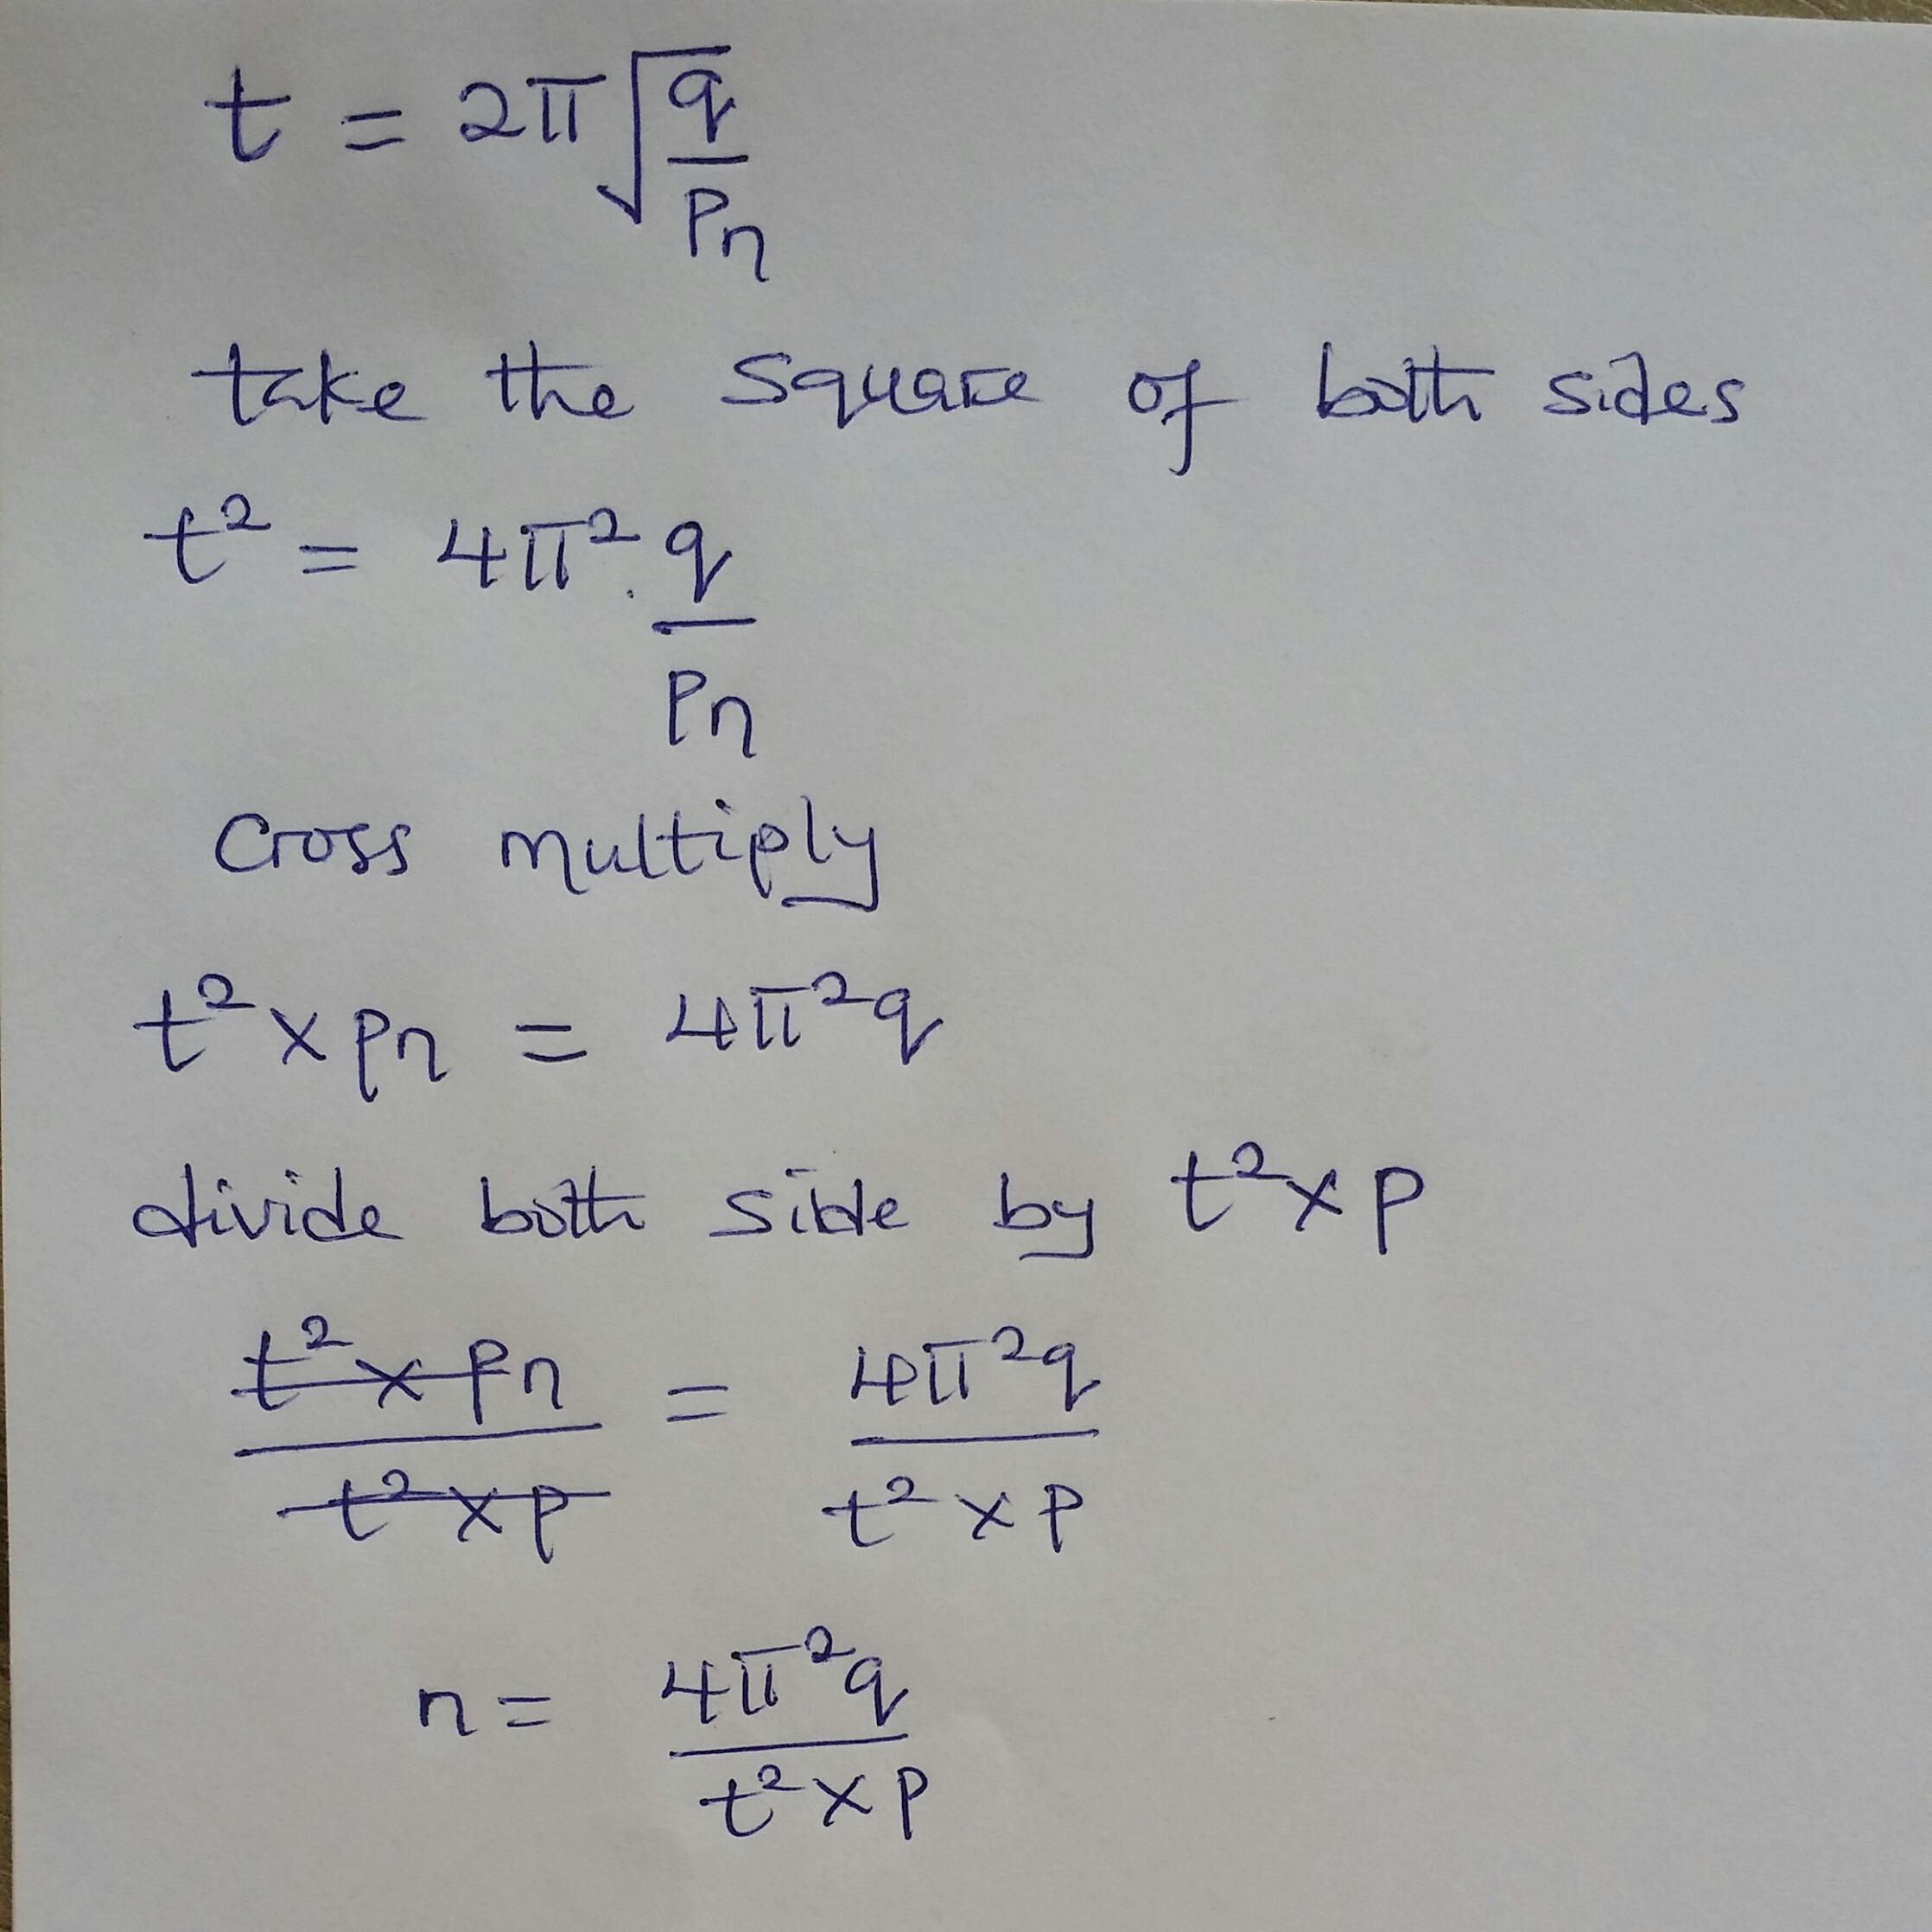 t = 2π√(q/Pn)
take the square of both sides
t² = 4π² . q/Pn
Cross multiply
t² × pn = 4π²q
divide both side by t² × p
t² × pn / t² × p = 4π²q / t² × p
n = 4π²q / t² × p